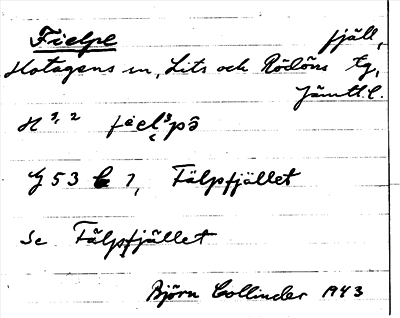 Fielpe fjäll,
Hotagens sn, Lits och Rödöns tg,
Jämtl. l.
H 1, 2
G 53 b 1, Fälpfjället
Se Fälpfjället
Björn Collinder 1943